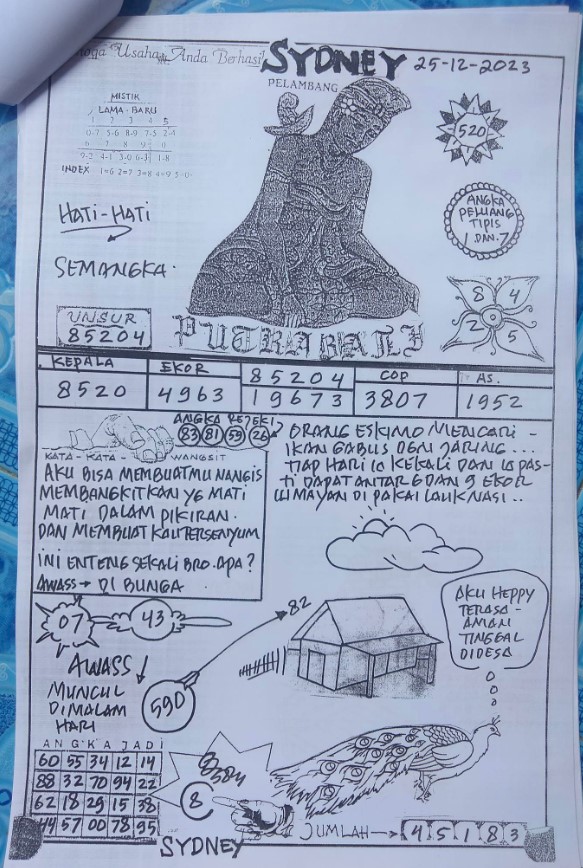 Usaha Anda Berhasil
SYDNEY 25-12-2023
PELAMBANG
MISTIK
LAMA - BARU
1 2 3 4 5
0-7 5-6 8-9 7-5 2-4
6 7 8 9 0
9-2 4-1 3-0 6-3 1-8
INDEX 1=6 2=7 3=8 4=9 5=0
520
HATI-HATI
SEMANGKA.
ANGKA
PELUANG
TIPIS
1 DAN. 7
8 4
2 5
UNSUR
85204
PUTRA BALI
KEPALA EKOR 85204 COP AS.
8520 4963 19673 3807 1952
ANGKA REJEKI
83 81 59 26
KATA - KATA - WANGSIT
AKU BISA MEMBUATMU NANGIS
MEMBANGKITKAN YG MATI
MATI DALAM PIKIRAN.
DAN MEMBUAT KAU TERSENYUM
INI ENTENG SEKALI BRO. APA?
AWASS → DI BUNGA
ORANG ESKIMO MENCARI -
IKAN GABUS DGN JARING...
TIAP HARI 10 KEKALI DAN 10 PAS-
TI DAPAT ANTAR 6 DAN 9 EKOR
LUMAYAN DI PAKAI LAUK NASI..
07 43
82
AWASS
MUNCUL
DIMALAM
HARI
590
AKU HEPPY
TERASA -
AMAN
TINGGAL
DIDESA
ANGKA JADI
60 55 34 12 14
88 32 70 94 22
62 18 29 15 38
44 57 00 78 95
8
JUMLAH → 4 5 1 8 3
SYDNEY